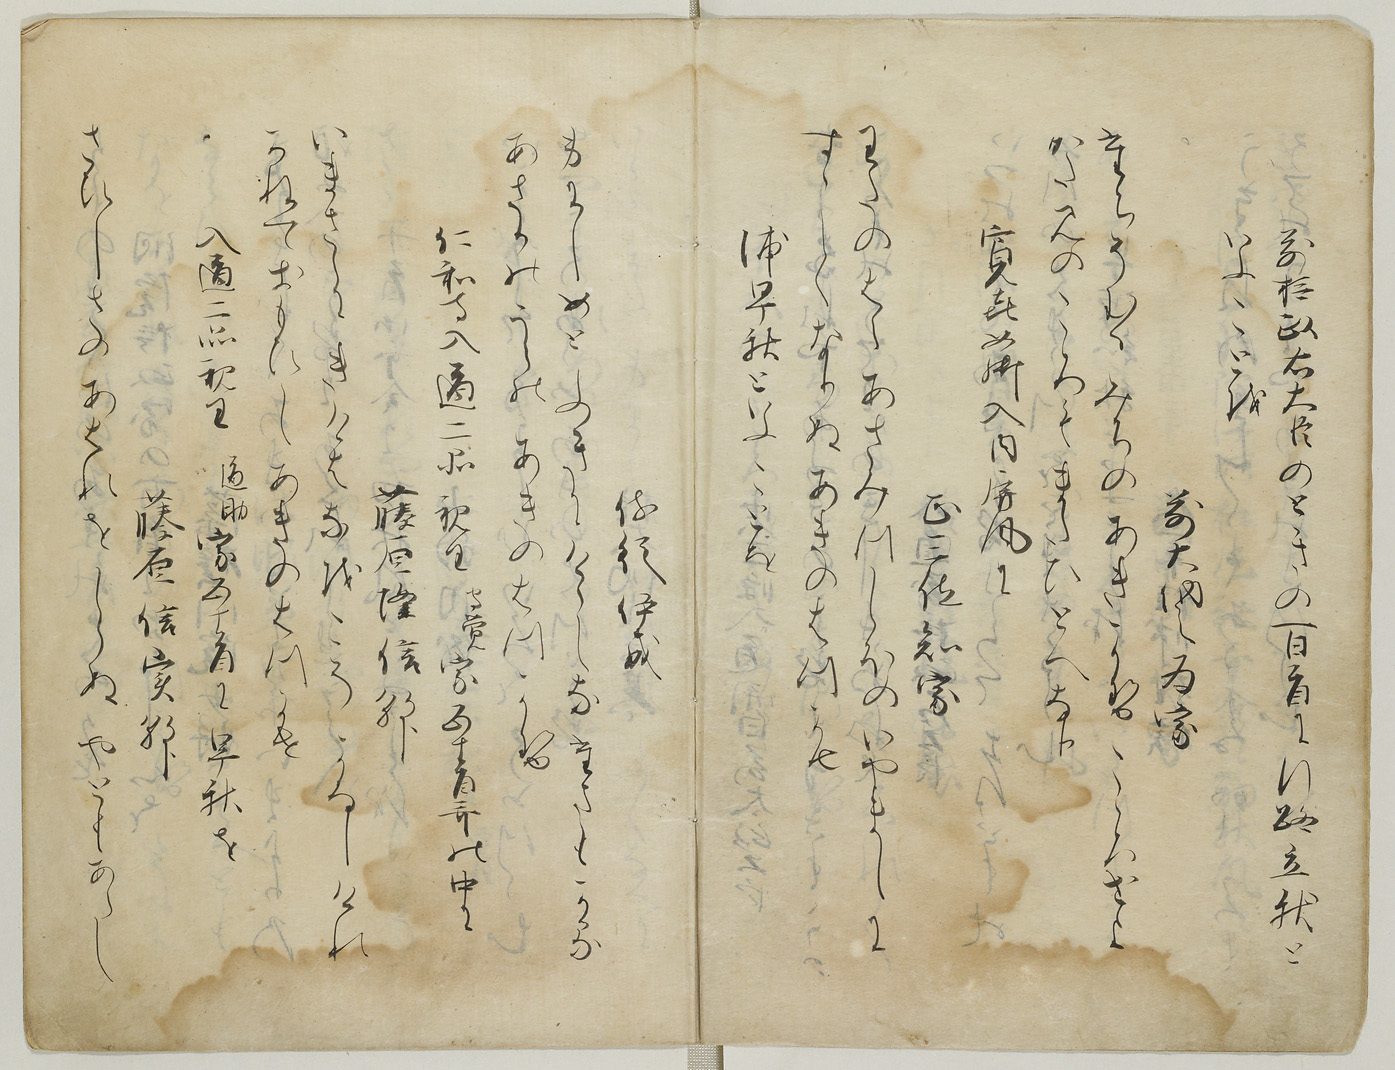 前摂政左大臣のときの百首に行路立秋と
いふことを
前大納言為家
みちのあきかせこゝろせよ
ころもまたひとへなり
寛喜女御入内屏風に
正三位知家
わたのはらあさみつしほのいやましに
すゝしくなりぬあきのはつかせ
浦早秋といふことを
侍従伊成
身にしめとふきにけらしなたまもかる
あさかのうらのあきのはつかせ
仁和寺入道二品親王守覚家五十首哥の中に
藤原隆信朝臣
いまさらにきけはなをこそかなしけれ
かねておもひしあきのはつかせ
入道二品親王道助家五十首に早秋を
藤原信実朝臣
さひしさのあはれをしらぬやともあらし